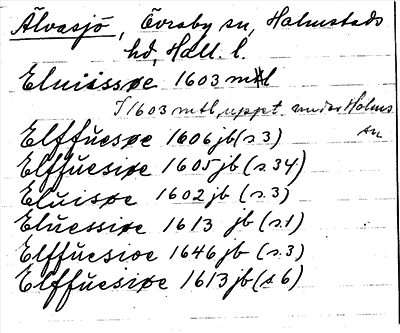 Älvasjö, Övraby sn, Halmstads
hd, Hall. l.
Eluissøe 1603 mtl
I 1603 mtl uppt. under Holms
sn
Elffuesøe 1606 jb (s. 3)
Elffuesiøe 1605 jb (s. 34)
Eluisøe 1602 jb (s. 3)
Eluessiøe 1613 jb (s. 1)
Elffuesiøe 1646 jb (s. 3)
Elffuesiøe 1613 jb (s 6)